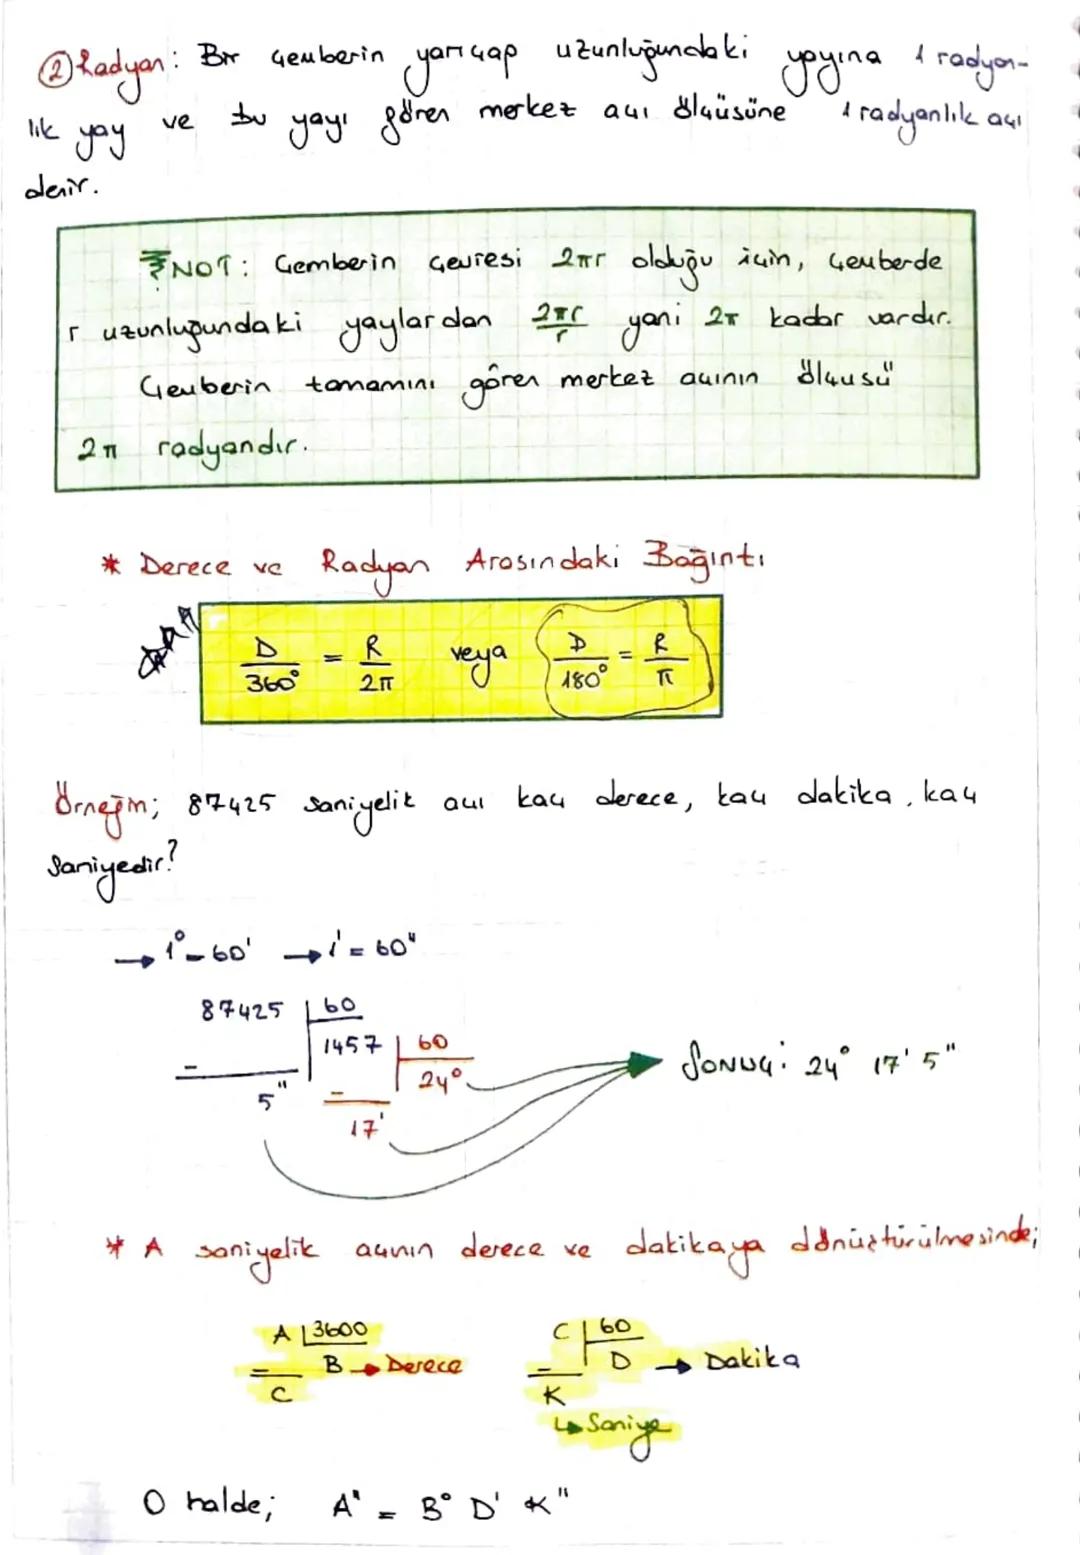 ② Radyan: Bir Çemberin yarıçap uzunluğundaki yayına 1 radyan-
lık yay ve bu yayı gören merkez açı ölçüsüne 1 radyanlık açı
denir.
NOT: Çemberin Çevresi 2πr olduğu için, Çemberde
r uzunluğundaki yaylardan 2πr/r yani 2π kadar vardır.
Çemberin tamamını gören merkez açının ölçüsü
2π radyandır.
* Derece ve Radyan Arasındaki Bağıntı
D/360° = R/2π veya D/180° = R/π
Örneğin; 87425 saniyelik açı kaç derece, kaç dakika, kaç
saniyedir?
→ 1° - 60' → 1' = 60"
87425 | 60
1457 | 60
- 24°
5" -
17'
SONUÇ: 24° 17' 5"
* A saniyelik açının derece ve dakikaya dönüştürülmesinde;
A | 3600 C | 60
- B → Derece - D → Dakika
C K
↳ Saniye
O halde; A" = B° D' K"